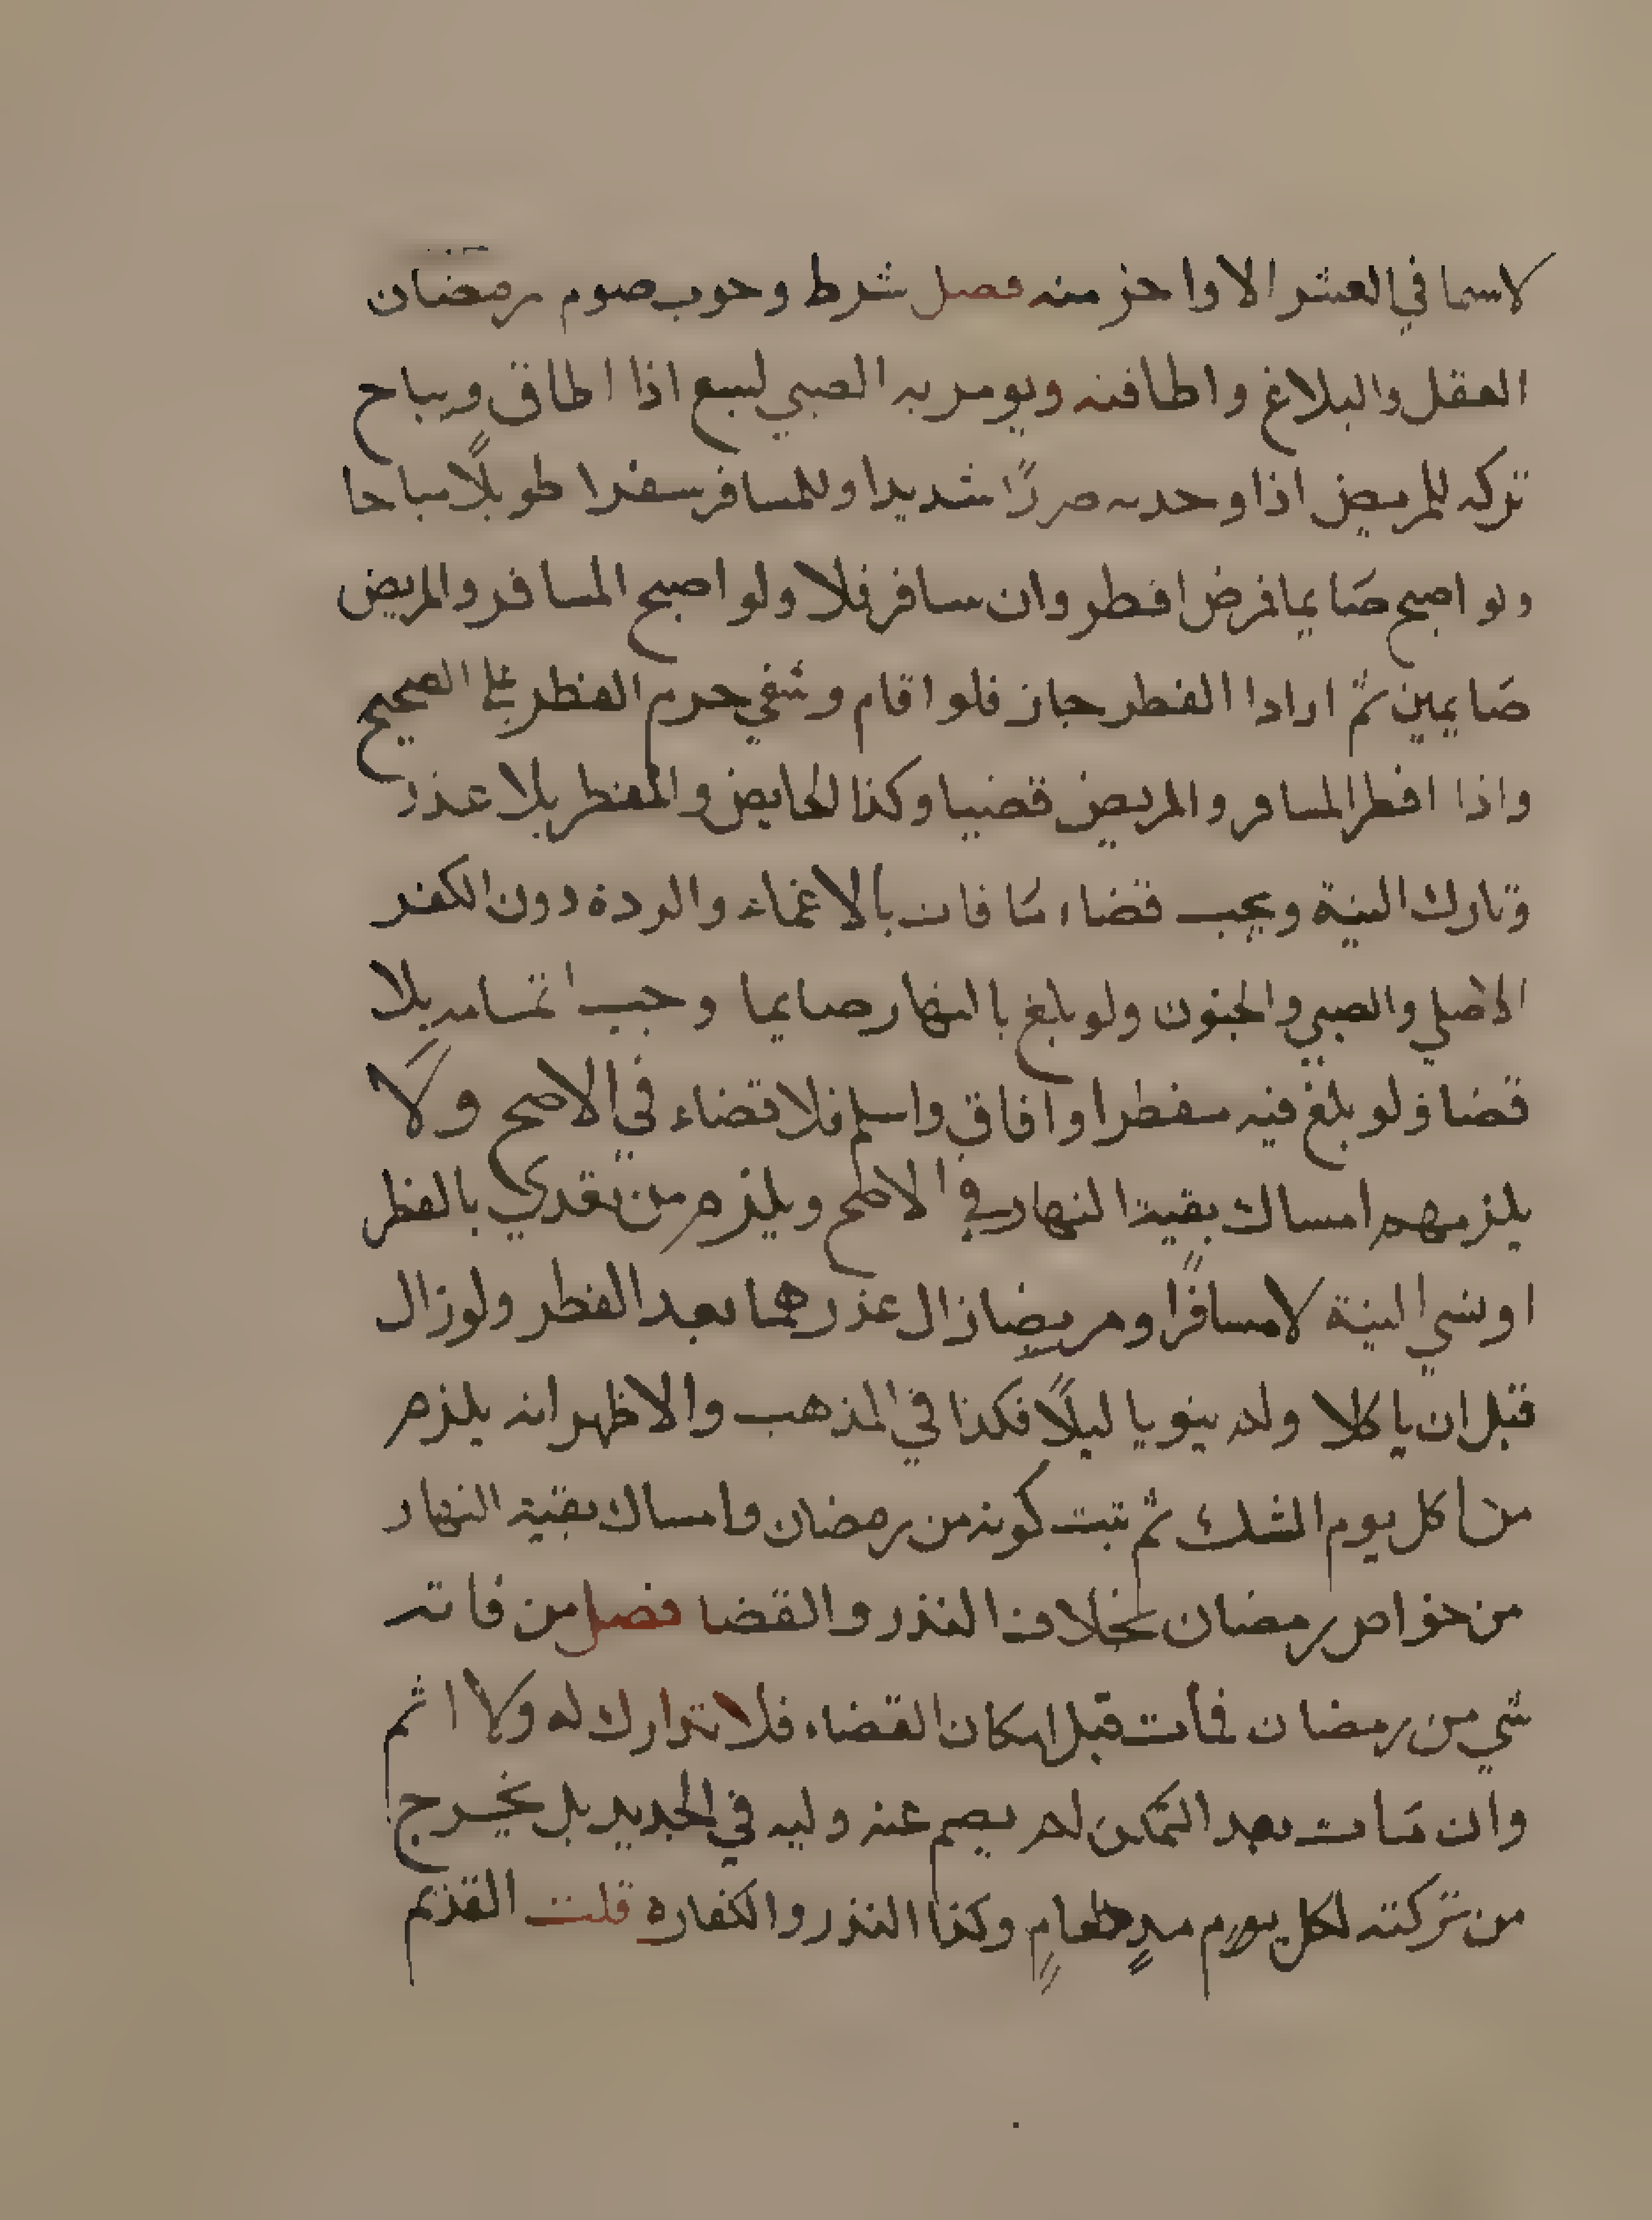 لاسيما في العشر الاواخر منه فصل شرط وجوب صوم رمضان
العقل والبلاغ واطاقته ويومر به الصبي لسبع اذا اطاق ويباح
تركه للمريض اذا وجد به ضررًا شديدا وللمسافر سفرا طويلًا مباحا
ولو اصبح صايما فمرض افطر وان سافر فلا ولو اصبح المسافر والمريض
صايمين ثم ارادا الفطر جاز فلو اقام وشفي حرم الفطر على الصحيح
واذا افطر المسافر والمريض قضيا وكذا الحايض والمفطر بلا عذر
وتارك النية ويجب قضاء ما فات بالاغماء والردة دون الكفر
الاصلي والصبي والجنون ولو بلغ بالنهار صايما وجب اتمامه بلا
قضا ولو بلغ فيه مفطرا وافاق واسلم فلا قضاء في الاصح ولا
يلزمهم امساك بقية النهار في الاصح ويلزم من تعدي بالفطر
او نسي النية لا مسافرًا ومريضا زال عذرهما بعد الفطر ولو زال
قبل ان ياكلا ولم ينويا ليلًا فكذا في المذهب والاظهر انه يلزم
من اكل يوم الشك ثم ثبت كونه من رمضان وامساك بقية النهار
من خواص رمضان بخلاف النذر والقضا فصل من فاته
شي من رمضان فمات قبل امكان القضاء فلا تدارك له ولا اثم
وان مات بعد التمكن لم يصم عنه وليه في الجديد بل يخرج
من تركته لكل يومٍ مدٍ طعامٍ وكذا النذر والكفارة قلت القديم